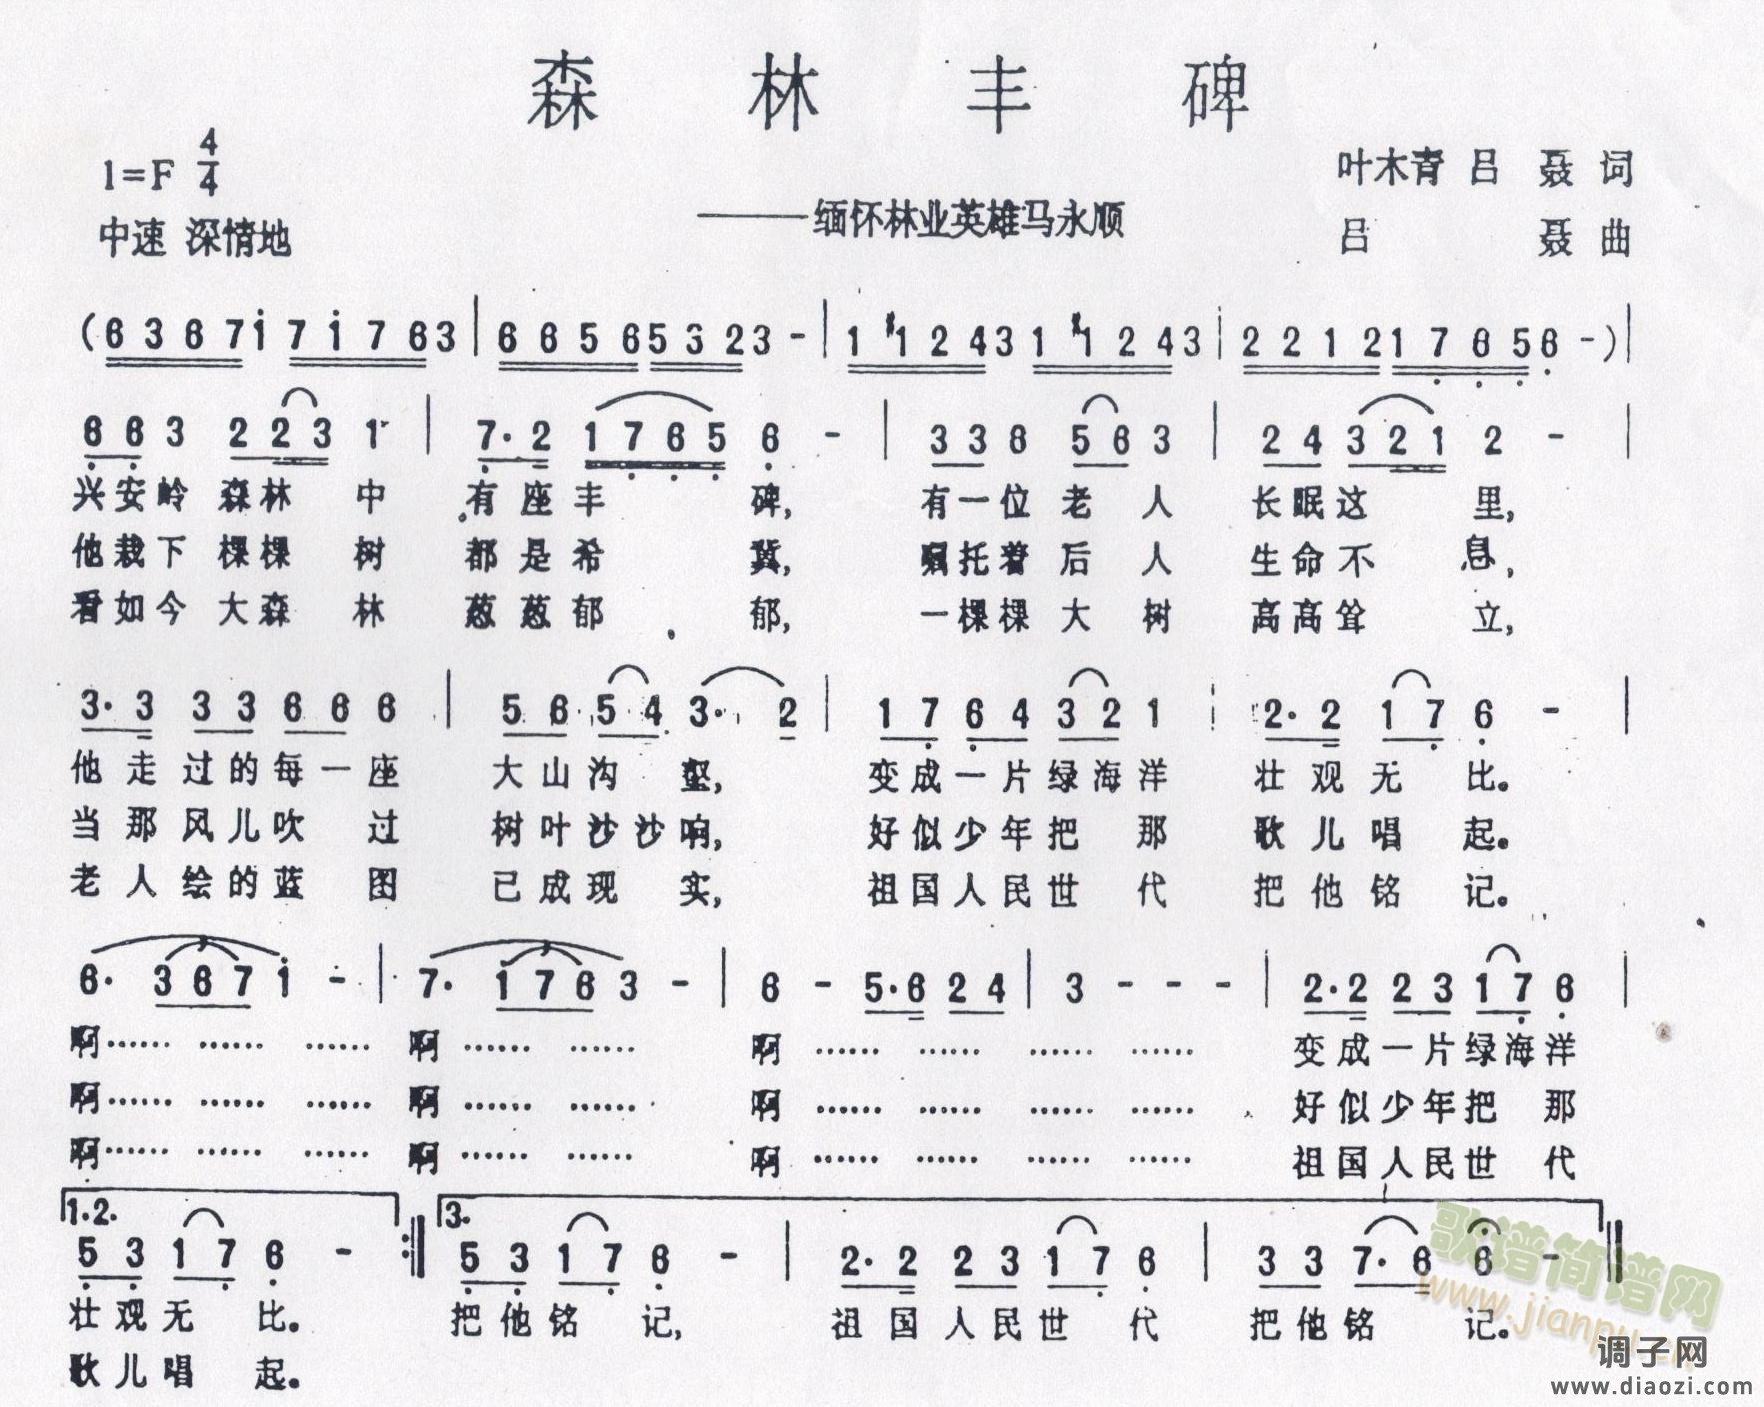 森林丰碑
1=F 4/4
叶木青 吕 聂 词
——缅怀林业英雄马永顺
中速 深情地
吕 聂 曲
(6 3 6 7 i 7 i 7 6 3 | 6 6 5 6 5 3 2 3 - | 1 #1 2 4 3 1 #1 2 4 3 | 2 2 1 2 1 7 6 5 6 -) |
6 6 3 2 2 3 1 | 7· 2 1 7 6 5 6 - | 3 3 6 5 6 3 | 2 4 3 2 1 2 - |
兴安岭 森林 中 有座丰 碑, 有一位老 人 长眠这 里,
他栽下 棵棵 树 都是希 冀, 嘱托着后 人 生命不 息,
看如今 大森 林 葱葱郁 郁, 一棵棵大 树 高高耸 立,
3· 3 3 3 6 6 6 | 5 6 5 4 3· 2 | 1 7 6 4 3 2 1 | 2· 2 1 7 6 - |
他走过的每一座 大山沟 壑, 变成一片绿海洋 壮观无 比。
当那风儿吹 过 树叶沙沙响, 好似少年把 那 歌儿唱 起。
老人绘的蓝 图 已成现 实, 祖国人民世 代 把他铭 记。
6· 3 6 7 i - | 7· 1 7 6 3 - | 6 - 5· 6 2 4 | 3 - - - | 2· 2 2 3 1 7 6 |
啊…… …… …… 啊…… …… 啊…… …… …… …… 变成一片绿海洋
啊…… …… …… 啊…… …… 啊…… …… …… …… 好似少年把 那
啊…… …… …… 啊…… …… 啊…… …… …… …… 祖国人民世 代
1.2. 3.
5 3 1 7 6 - :‖ 5 3 1 7 6 - | 2· 2 2 3 1 7 6 | 3 3 7· 6 6 - ‖
壮观无 比。 把他铭 记, 祖国人民世 代 把他铭 记。
歌儿唱 起。
歌谱简谱网
www.jianpu.cn
调子网
www.diaozi.com